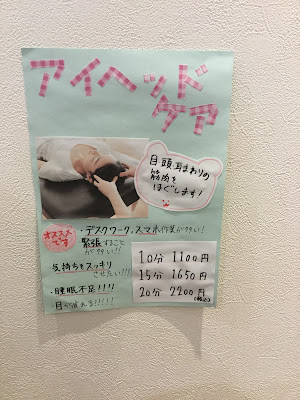 アイヘッド
ケア
目頭耳まわりの
筋肉を
ほぐします!
オススメ
です
・デスクワーク、スマホ作業が多い!
緊張することが多い!!
気持ちをスッキリさせたい!!!
・睡眠不足!!!!
・目が疲れる!!!!!
10分 1100円
15分 1650円
20分 2200円
(税込)